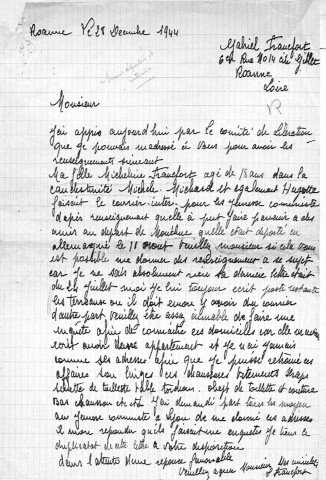 Roanne le 28 Decembre 1944
Gabriel Francfort
6 Rue Cité Gillet
Roanne
Loire
Monsieur
J'ai appris aujourd'hui par le comité de Libération
que je pouvais madressé a Vous pour avoir les
renseignements suivant
Ma fille Micheline Francfort agé de 18 ans dans la
clandestinité Michele Michard et egalement Huguette
faisait le courrier inter. pour les jeunesse communiste
d'apres renseignement quelle a put faire parvenir a des
amis au depart de Montluc quelle etait deporté en
allemagne le 11 aout Veuillez monsieur si cela vous
est possible me donner des renseignement a se sujet
car je ne sais absolument rien la derniere lettre etait
du 24 Juillet moi je lui toujours ecrit poste restante
les terreaux ou il doit encore y avoir du courrier
d'autre part Veuillez être assez aimable de faire une
enquete afin de connaitre ces domiciles car elle
avoir appartement et je n'ai jamais
connue ses adresses afin que je puisse retrouvé ces
affaires son linges ces chaussures Vetements draps
serviette de toilette objet de toilette et couture
Bas chausson J'ai demandé part tous les moyen
aux jeunesse communiste a Lyon de me donné ces adresses
il mon repondu qu'ils faisait une enquetes je tiens le
duplicatat de cete lettre a votre disposition
dans l'attente d'une reponse favorable
Veuillez agreer Monsieur
Francfort